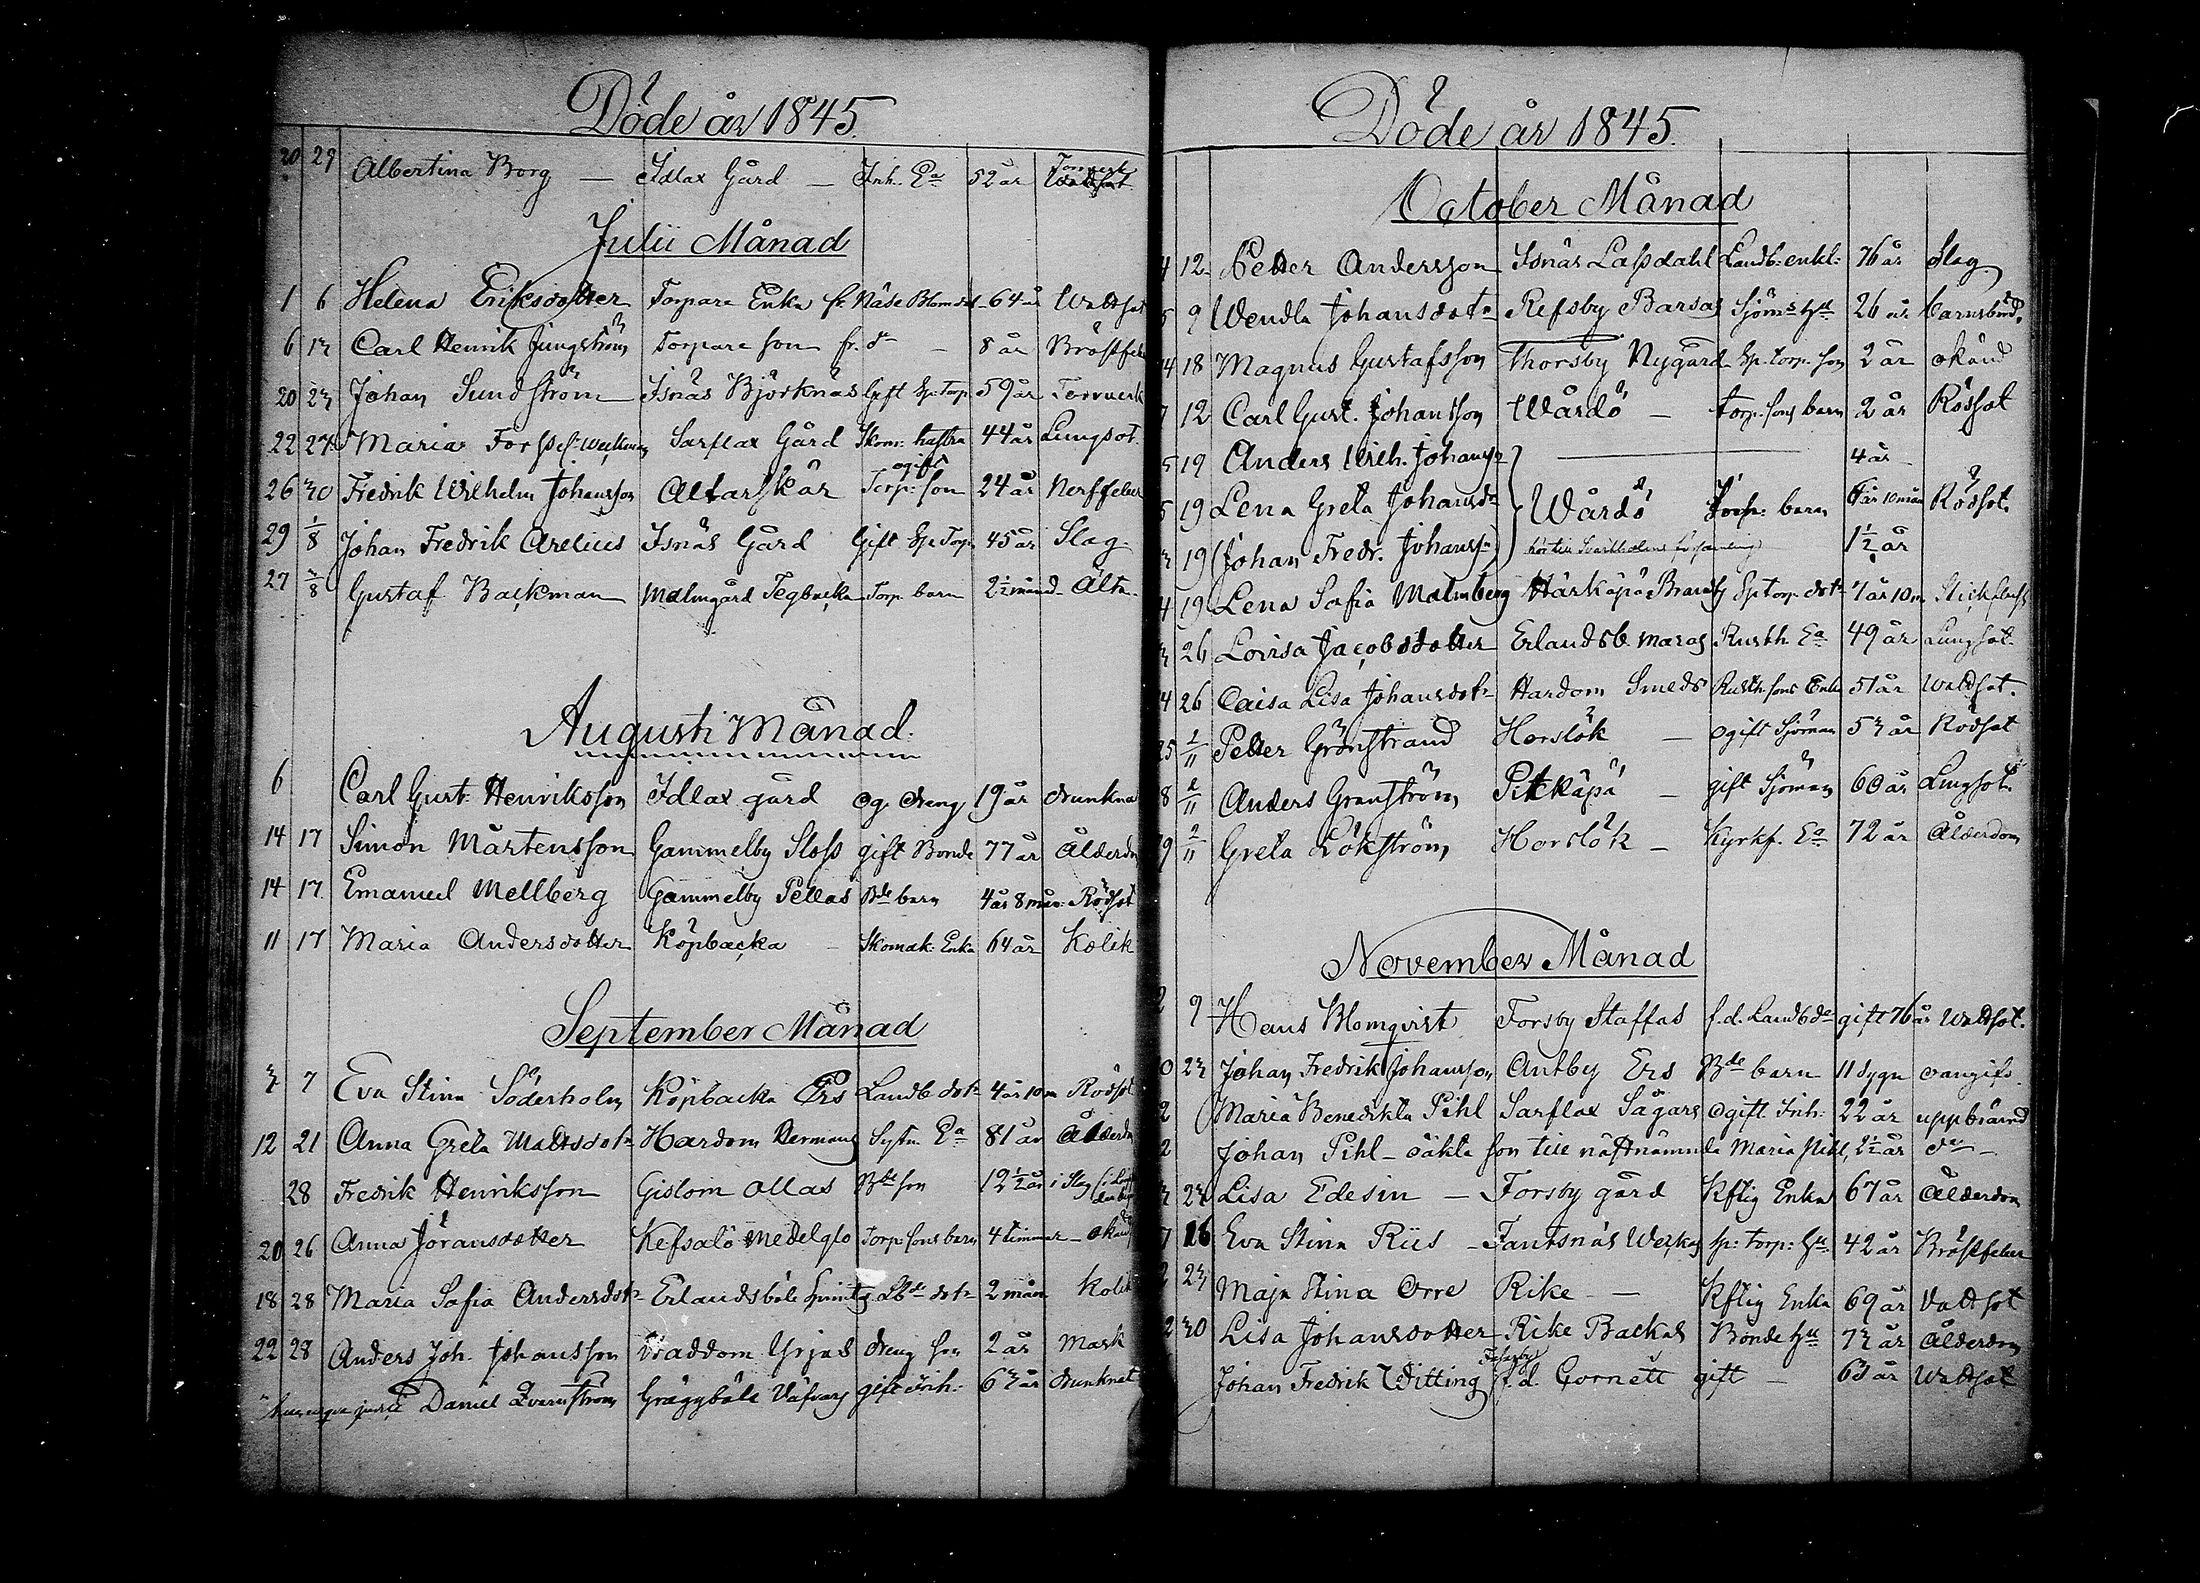 Döde år 1845.
20 29 Albertina Borg — Idlax Gård — Inh. Ea 52 år Torrverk
Julii Månad
1 6 Helena Eriksdotter Torpare Enka fr. Näse 64 år Wattsot
6 13 Carl Henrik Jungström Torpare son fr. do — 8 år Bröstfeber
20 23 Johan Sundström Isnäs Björknäs Gift Sp: Torp. 59 år Torrverk
22 27 Maria Sarflax Gård Skom: hustru 44 år Lungsot.
26 30 Fredrik Wilhelm Johansson Altarskär ogift Torp: son 24 år Nerffeber
29 1/8 Johan Fredrik Arelius Isnäs Gård Gift Sp: Torp. 45 år Slag.
27 3/8 Gustaf Backman Malmgård Tegbacka Torp. barn 2½ månad Ältan
Augusti Månad.
6 Carl Gust. Henriksson Idlax gård og. dreng 19 år drunknat
14 17 Simon Mårtensson Gammelby Sloss gift Bonde 77 år Ålderdom
14 17 Emanuel Mellberg Gammelby Pellas Bde barn 4 år 8 mån: Rödsot
11 17 Maria Andersdotter Köpbacka — Skomak: Enka 64 år Kolik
September Månad
3 7 Eva Stina Söderholm Köpbacka Ers Landb. dotr 4 år 10 m Rödsot
12 21 Anna Greta Mattsdotr Hardom Hermans Sytn. Ea 81 år Ålderdom
28 Fredrik Henriksson Gislom Ollas Bde son 12½ år
20 26 Anna Jöransdotter Kefsalö Medelglo Torp: sons barn 4 timmar — okänd
18 28 Maria Sofia Andersdotr Erlandsböle Lbde dotr 2 mån Kolik
22 28 Anders Joh. Johansson Waddom Yrjas dreng son 2 år Mask
Daniel Qvarnström Gräggböle Väfvars gift Inh: 63 år drunknat
Döde år 1845.
October Månad
4 12 Petter Andersson Isnäs Lassdahl Landb: enkl: 76 år Slag
5 9 Wendla Johansdotr Refsby Barsas Sjöms Hu 26 år barnsbörd.
14 18 Magnus Gustafsson Thorsby Nygård Sp. torp. son 2 år okänd
7 12 Carl Gust. Johansson Wårdö — torp. sons barn 2 år Rödsot
5 19 Anders Wilh. Johanssn — 4 år
5 19 Lena Greta Johansdr Wårdö Torp: barn år 10 mån Rödsot.
3 19 (Johan Fredr. Johanssn) hör till Svartholms församling 1½ år
4 19 Lena Sofia Malmberg Härkäpä Sp torp. dotr 7 år 10 m Stickfluss
3 26 Lovisa Jacobsdotter Erlandsb. Maras Rusth. Ea 49 år Lungsot.
4 26 Caisa Lisa Johansdotr Hardom Smeds Rusth. sons Enka 51 år Wattsot.
25 2/11 Petter Grönstrand Horslök — ogift Sjöman 53 år Rödsot
8 2/11 Anders Granström Pitkäpä — gift Sjöman 60 år Lungsot.
9 2/11 Greta Lökström Horslök — Kyrkf. Ea 72 år Ålderdom
November Månad
2 9 Hans Blomqvist Forsby Staffas f.d. Landbde gift 76 år Wattsot.
0 23 Johan Fredrik Johansson Antby Ers Bde barn 11 dygn oangifv.
2 Maria Benedikta Pihl Sarflax Sågars ogift Inh: 22 år uppbränd
2 Johan Pihl — oäkta son till nästnämnda Maria Pihl, 2½ år do —
3 23 Lisa Edesin — Forsby gård Kftig Enka 67 år Ålderdom
7 16 Eva Stina Riis — Fantsnäs Werkas sp: torp: Hu 42 år Bröstfeber
2 23 Maja Stina Orre Rike — Kftig Enka 69 år Vattsot
2 30 Lisa Johansdotter Rike Backas Bonde Hu 73 år Ålderdom
Johan Fredrik Witting f.d. Cornett gift — 63 år Wattsot